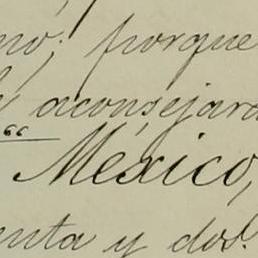 no; porque
aconsejara
México,
enta y dos.